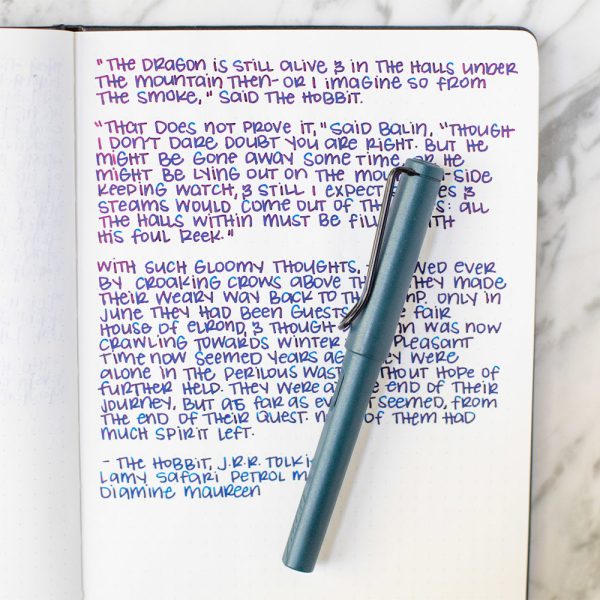 "The dragon is still alive & in the halls under
the mountain then- or I imagine so from
the smoke," said the hobbit.
"That does not prove it," said Balin, "though
I don't dare doubt you are right. But he
might be gone away some time, or he
might be lying out on the -side
keeping watch, & still I expect &
steams would come out of : all
the halls within must be
his foul reek."
With such gloomy thoughts, ever
by croaking crows above they made
their weary way back to only in
June they had been guests fair
house of Elrond, & though was now
crawling towards winter pleasant
time now seemed years were
alone in the perilous hope of
further help. They were end of their
journey, but as far as seemed, from
the end of their quest. of them had
much spirit left.
- The Hobbit, J.R.R.
Lamy Safari Petrol
Diamine Maureen